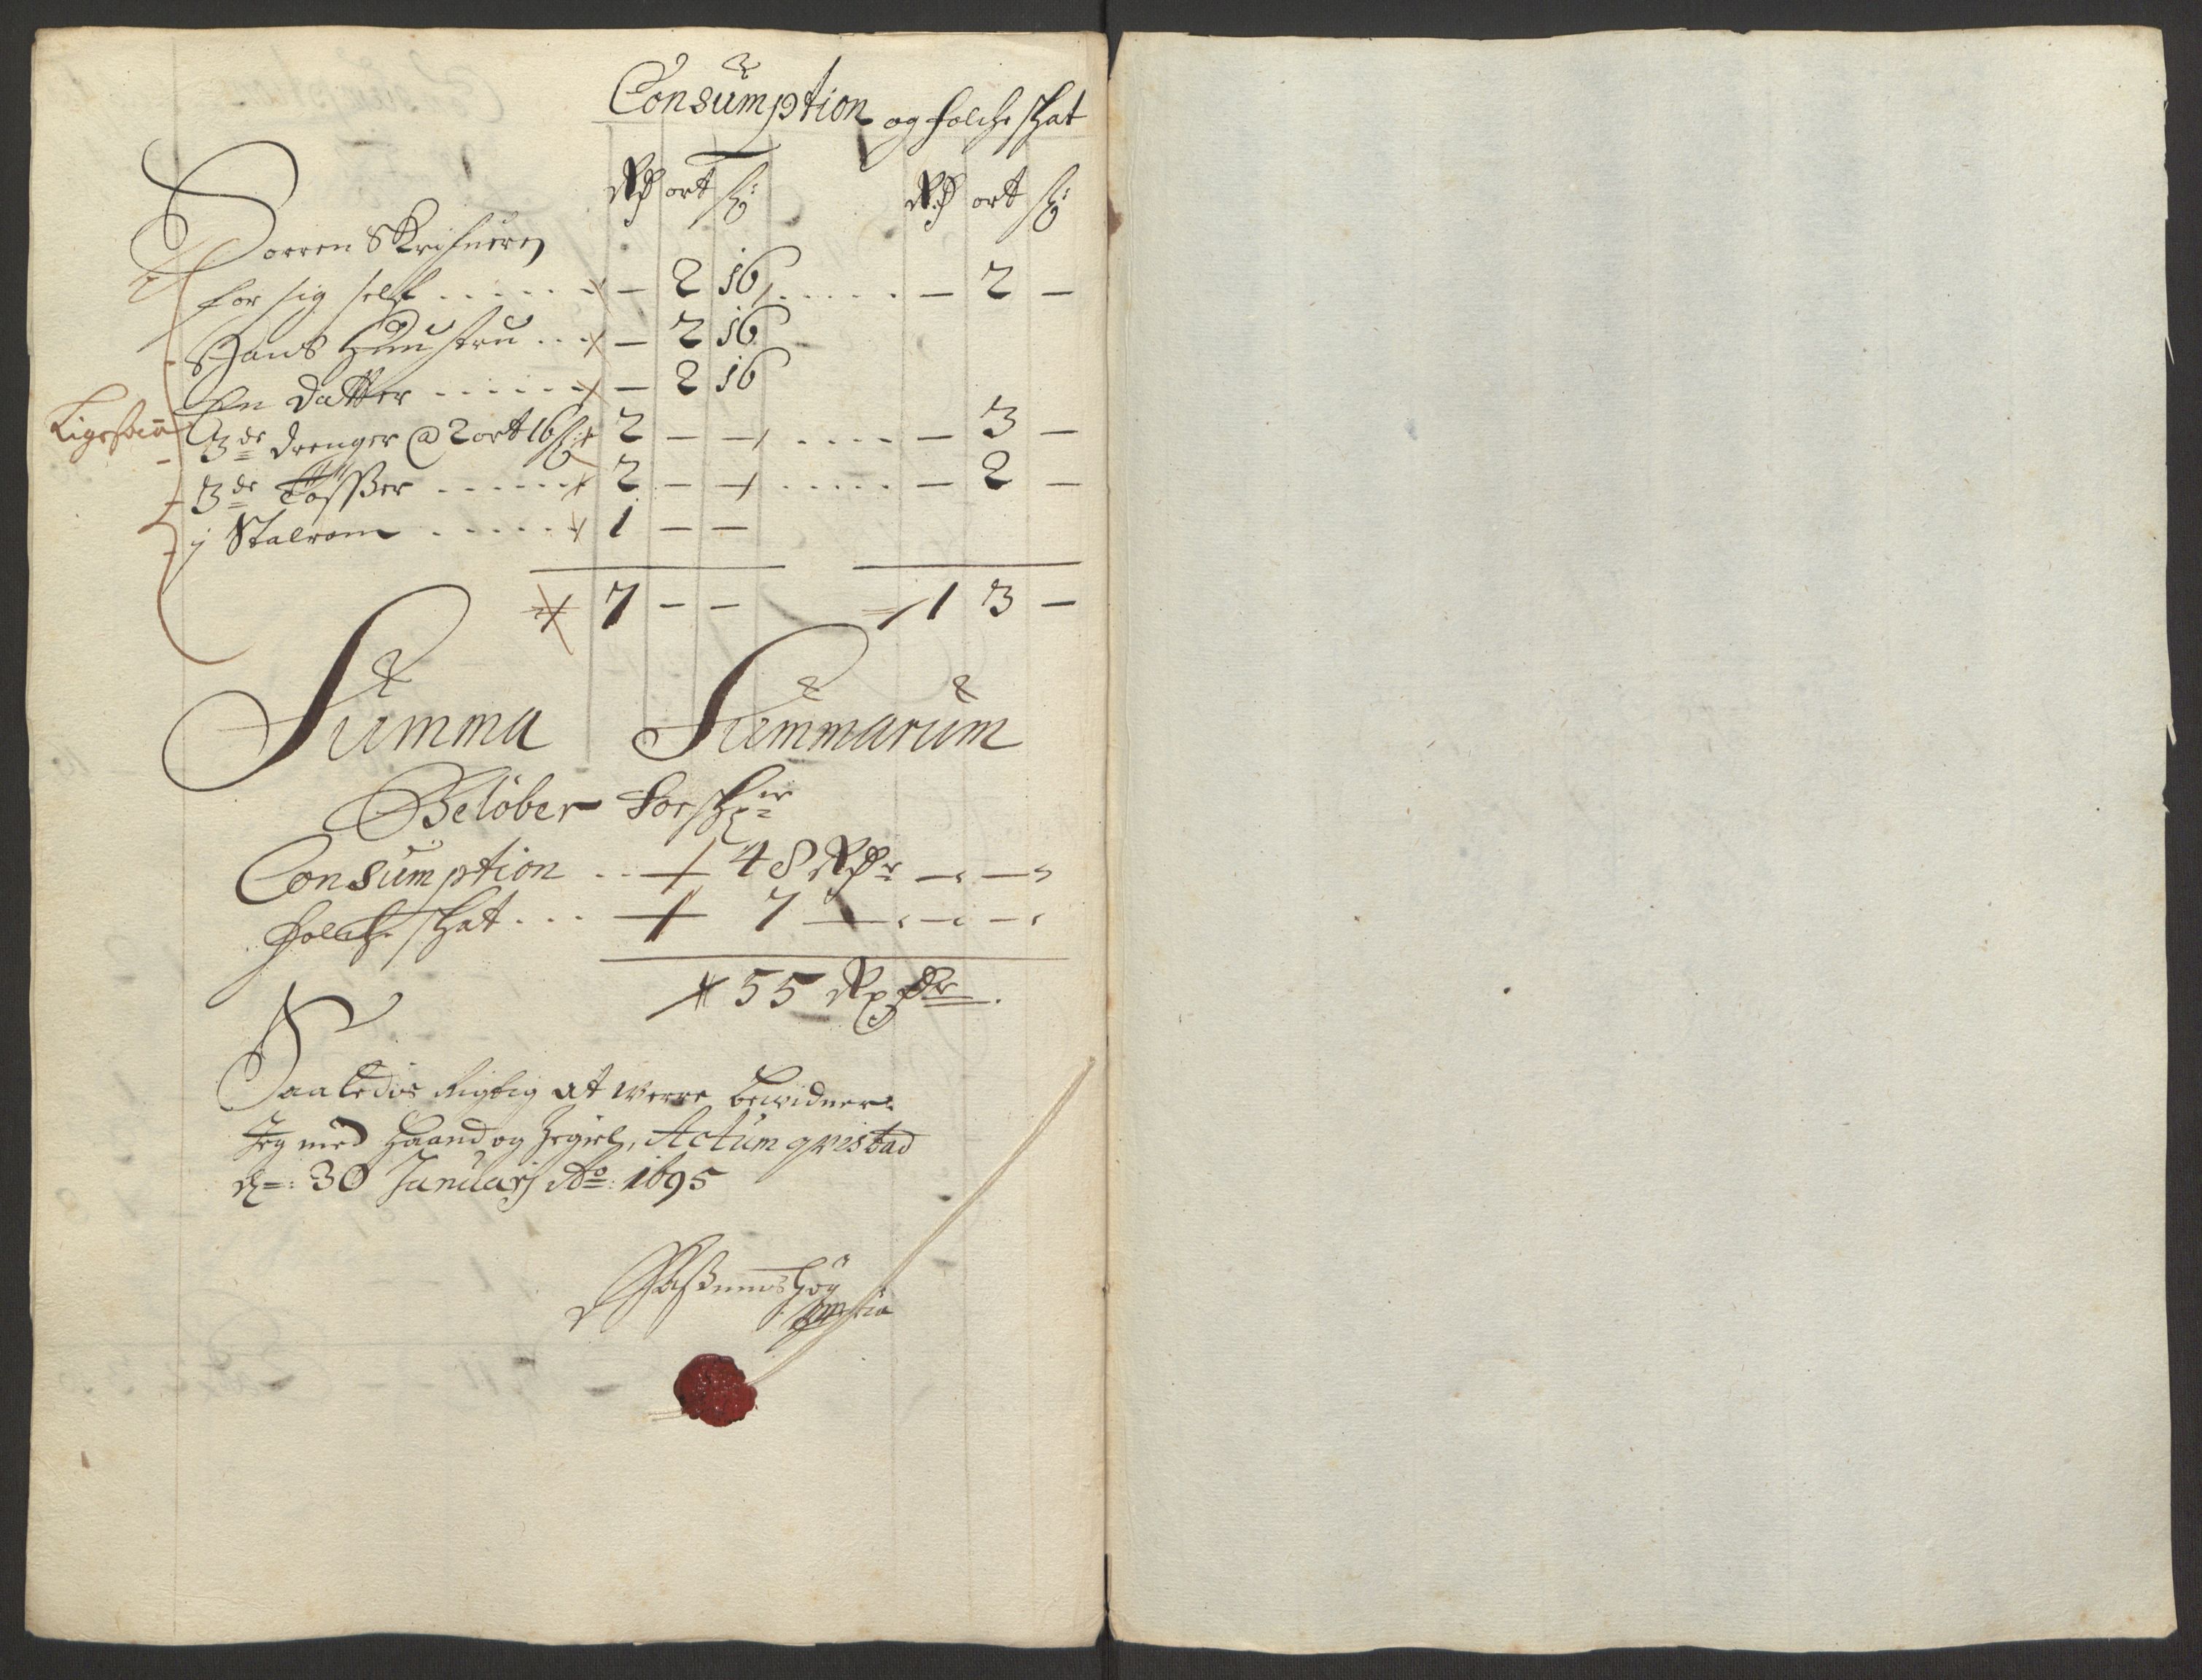 Consumption og folche schat
Rd ort sk: Rd ort sk:
Sorren Skrifuere
for sig self . . . . . — 2 16 . . . . . — 2 —
Hans Hustru . . . — 2 16
En datter . . . . . — 2 16
Ligesaa 3de drenger @ 2 ort 16 sk: 2 — — . . . . — 3 —
3de Tøsser . . . . . 2 — — . . . . . — 2 —
j Stalrom . . . . . 1 — —
7 — — 1 3 —
Summa Summarum
Beløber
Consumption . . — 48 Rdr — —
folche schat . . . — 7 — — —
55 Rdr.
Saaledis Rigtig at werre bewidner
Jeg med Haand og Zegiel, Actum qvistad
d: 30 Januarj Ao: 1695